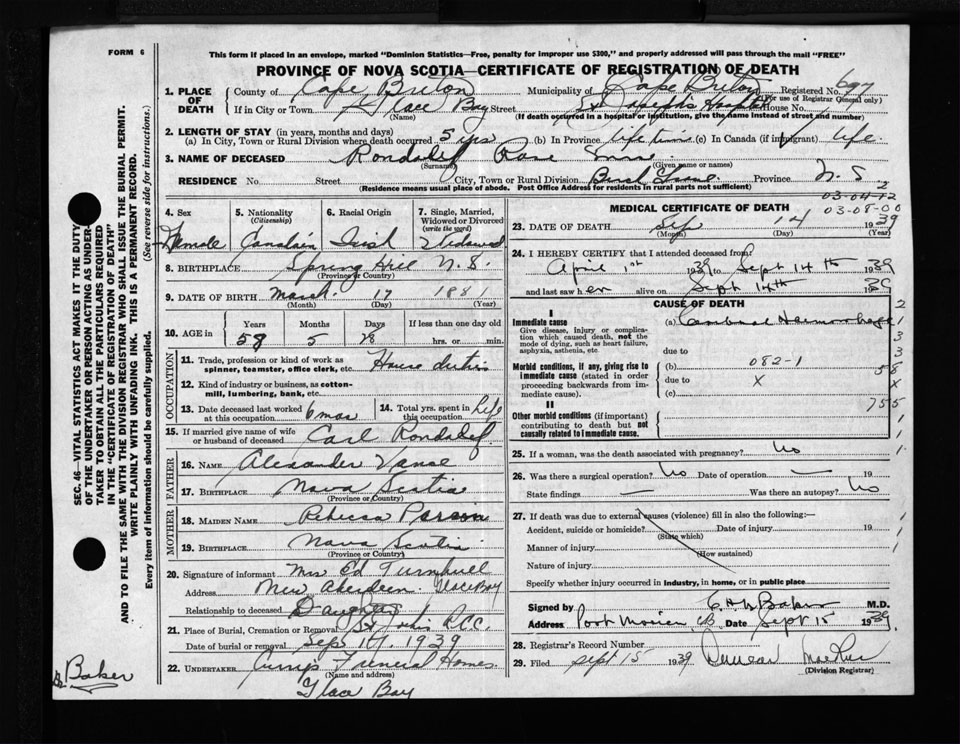 FORM 6
This form if placed in an envelope, marked "Dominion Statistics—Free, penalty for improper use $300," and properly addressed will pass through the mail "FREE"
PROVINCE OF NOVA SCOTIA—CERTIFICATE OF REGISTRATION OF DEATH
1. PLACE OF DEATH County of Cape Breton Municipality of Cape Breton Registered No. 697
(For use of Registrar General only)
If in City or Town Glace Bay Street St Josephs Hospital House No.
(Name) (If death occurred in a hospital or institution, give the name instead of street and number)
2. LENGTH OF STAY (in years, months and days)
(a) In City, Town or Rural Division where death occurred 5 yrs (b) In Province Life time (c) In Canada (if immigrant) Life
3. NAME OF DECEASED Rose
(Surname) (Given name or names)
RESIDENCE No. Street City, Town or Rural Division Birch Grove Province N. S.
(Residence means usual place of abode. Post Office Address for residents in rural parts not sufficient)
2
03-04-12
03-08-00
4. Sex 5. Nationality (Citizenship) 6. Racial Origin 7. Single, Married, Widowed or Divorced (write the word)
Female Irish Widowed
8. BIRTHPLACE Spring Hill N. S.
(Province or Country)
9. DATE OF BIRTH March 17 1881
(Month) (Day) (Year)
10. AGE in Years Months Days If less than one day old
58 5 28 hrs. or min.
OCCUPATION
11. Trade, profession or kind of work as spinner, teamster, office clerk, etc. House duties
12. Kind of industry or business, as cotton-mill, lumbering, bank, etc.
13. Date deceased last worked at this occupation 6 mos 14. Total yrs. spent in this occupation Life
15. If married give name of wife or husband of deceased Carl
FATHER
16. NAME Alexander
17. BIRTHPLACE Nova Scotia
(Province or Country)
MOTHER
18. MAIDEN NAME Rebecca
19. BIRTHPLACE Nova Scotia
(Province or Country)
20. Signature of informant Mrs Ed Turnbull
Address New Aberdeen Glace Bay
Relationship to deceased Daughter
21. Place of Burial, Cremation or Removal St
Date of burial or removal Sep 17, 1939
22. UNDERTAKER Homes
(Name and address)
Glace Bay
MEDICAL CERTIFICATE OF DEATH
23. DATE OF DEATH Sep 14 1939
(Month) (Day) (Year)
24. I HEREBY CERTIFY that I attended deceased from
April 1st 1939 to Sept 14th 1939
and last saw her alive on Sept 14th 19
CAUSE OF DEATH
I
Immediate cause (a) Cerebral Hemorrhage
Give disease, injury or complication which caused death, not the mode of dying, such as heart failure, asphyxia, asthenia, etc
due to
Morbid conditions, if any, giving rise to immediate cause (stated in order proceeding backwards from immediate cause). (b) 082-1
due to X
(c)
II
Other morbid conditions (if important) contributing to death but not causally related to immediate cause.
2
1
3
3
58
X
755
1
1
1
25. If a woman, was the death associated with pregnancy? No
26. Was there a surgical operation? No Date of operation — 19
State findings — Was there an autopsy? No
27. If death was due to external causes (violence) fill in also the following:—
Accident, suicide or homicide? Date of injury 19
(State which)
Manner of injury
(How sustained)
Nature of injury
Specify whether injury occurred in industry, in home, or in public place
Signed by Baker M.D.
Address Port Morien C.B. Date Sept 15 1939
28. Registrar's Record Number
29. Filed Sept 15 1939 Duncan
(Division Registrar)
SEC. 46—VITAL STATISTICS ACT MAKES IT THE DUTY OF THE UNDERTAKER OR PERSON ACTING AS UNDERTAKER TO OBTAIN ALL THE PARTICULARS REQUIRED IN THE "CERTIFICATE OF REGISTRATION OF DEATH" AND TO FILE THE SAME WITH THE DIVISION REGISTRAR WHO SHALL ISSUE THE BURIAL PERMIT.
WRITE PLAINLY WITH UNFADING INK. THIS IS A PERMANENT RECORD.
Every item of information should be carefully supplied. (See reverse side for instructions.)
Baker